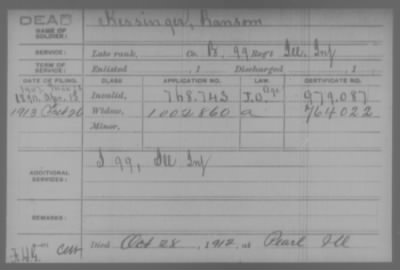 DEAD
NAME OF SOLDIER: Kessinger, Ransom
SERVICE: Late rank, Co. B, 99 Reg't Ill. Inf
TERM OF SERVICE: Enlisted , 1 Discharged , 1
DATE OF FILING. CLASS APPLICATION NO. LAW. CERTIFICATE NO.
Invalid, 768.743 979.087
1913 Widow, 1004860 a 764022
Minor,
ADDITIONAL SERVICES: I 99, Ill Inf
REMARKS:
Died Oct 28, 1912, at Pearl Ill